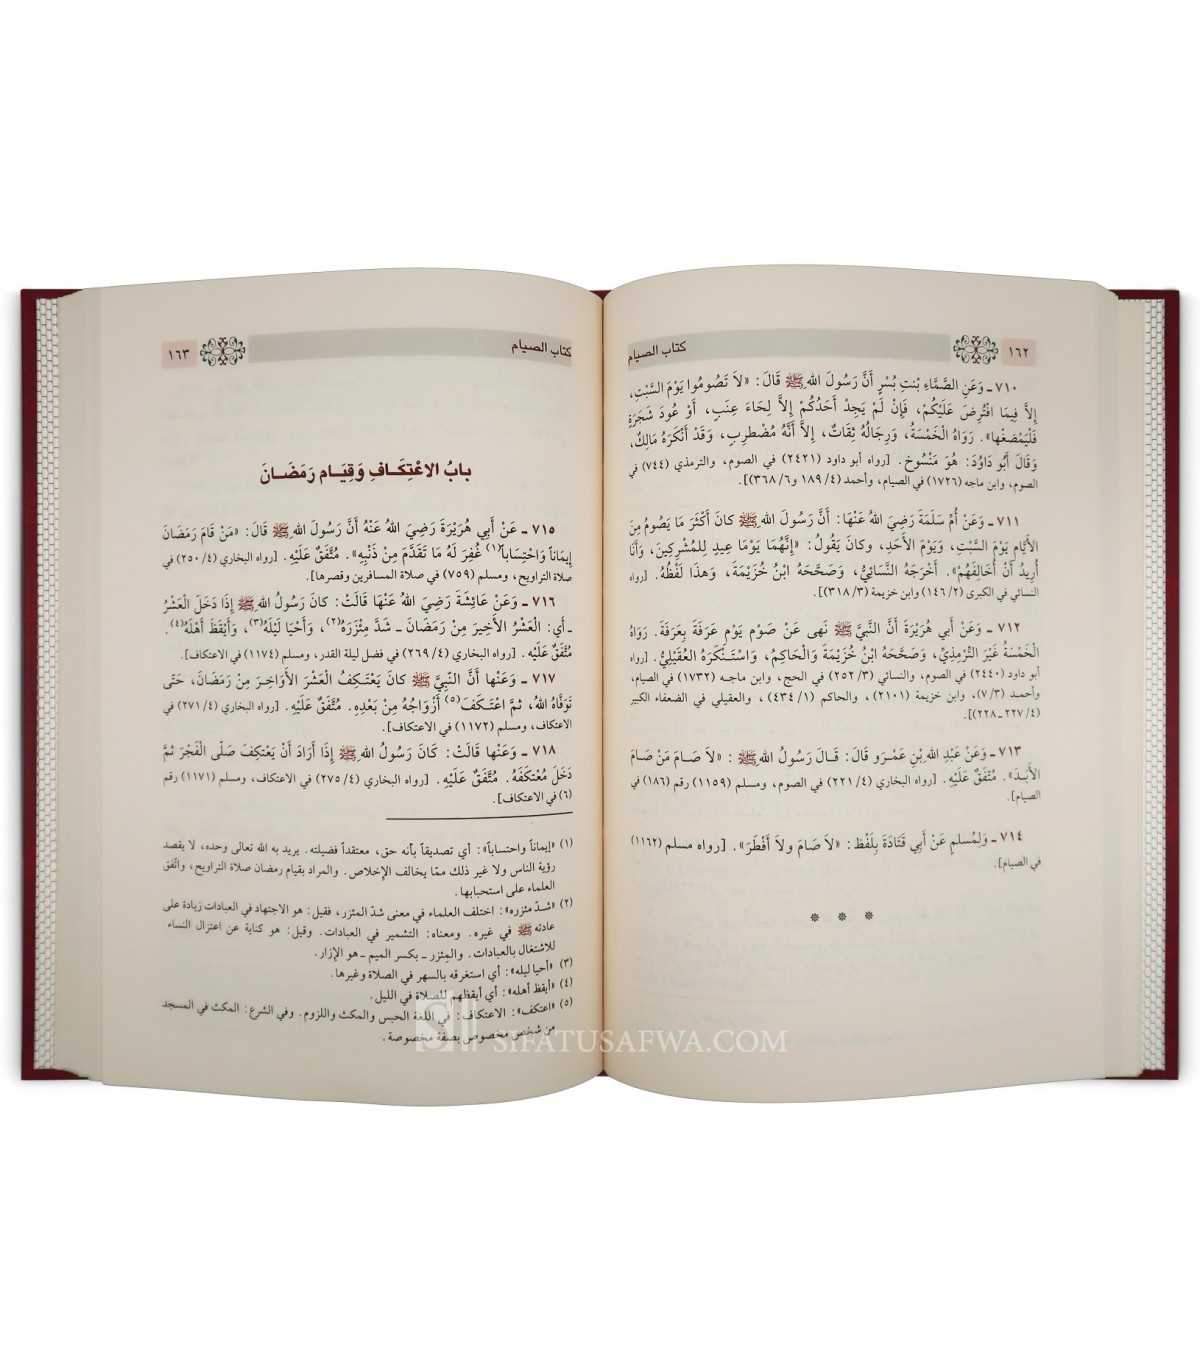 ١٦٢
كتاب الصيام
٧١٠ ـ وَعَنِ الصَّمَّاءِ بِنْتِ بُسْرٍ أَنَّ رَسُولَ اللهِ ﷺ قَالَ: «لاَ تَصُومُوا يَوْمَ السَّبْتِ،
إِلاَّ فِيمَا افْتُرِضَ عَلَيْكُمْ، فَإِنْ لَمْ يَجِدْ أَحَدُكُمْ إِلاَّ لِحَاءَ عِنَبٍ، أَوْ عُودَ شَجَرَةٍ
فَلْيَمْضَغْها». رَوَاهُ الْخَمْسَةُ، وَرِجَالُهُ ثِقَاتٌ، إِلاَّ أَنَّهُ مُضْطَرِبٌ، وَقَدْ أَنْكَرَهُ مَالِكٌ،
وَقَالَ أَبُو دَاوُدَ: هُوَ مَنْسُوخٌ. [رواه أبو داود (٢٤٢١) في الصوم، والترمذي (٧٤٤) في
الصوم، وابن ماجه (١٧٢٦) في الصيام، وأحمد (٤/ ١٨٩ و٦/ ٣٦٨)].
٧١١ ـ وَعَنْ أُمِّ سَلَمَةَ رَضِيَ اللهُ عَنْهَا: أَنَّ رَسُولَ اللهِ ﷺ كانَ أَكْثَرَ مَا يَصُومُ مِنَ
الأَيَّامِ يَوْمَ السَّبْتِ، وَيَوْمَ الأَحَدِ، وكانَ يَقُولُ: «إِنَّهُمَا يَوْمَا عِيدٍ لِلمُشْرِكِينَ، وَأَنَا
أُرِيدُ أَنْ أُخَالِفَهُمْ». أَخْرَجَهُ النَّسَائِيُّ، وَصَحَّحَهُ ابْنُ خُزَيْمَةَ، وَهذَا لَفْظُهُ. [رواه
النسائي في الكبرى (٢/ ١٤٦) وابن خزيمة (٣/ ٣١٨)].
٧١٢ ـ وَعَنْ أَبِي هُرَيْرَةَ أَنَّ النَّبِيَّ ﷺ نَهى عَنْ صَوْمِ يَوْمِ عَرَفَةَ بِعَرَفَةَ. رَوَاهُ
الْخَمْسَةُ غَيْرَ التِّرْمِذِيِّ، وَصَحَّحَهُ ابْنُ خُزَيْمَةَ وَالْحَاكِمُ، وَاسْتَنْكَرَهُ العُقَيْلِيُّ. [رواه
أبو داود (٢٤٤٠) في الصوم، والنسائي (٣/ ٢٥٢) في الحج، وابن ماجه (١٧٣٢) في الصيام،
وأحمد (٣/ ٧)، وابن خزيمة (٢١٠١)، والحاكم (١/ ٤٣٤)، والعقيلي في الضعفاء الكبير
(٤/ ٢٢٧ ـ ٢٢٨)].
٧١٣ ـ وَعَنْ عَبْدِ اللهِ بْنِ عَمْرٍو قَالَ: قَالَ رَسُولُ اللهِ ﷺ: «لاَ صَامَ مَنْ صَامَ
الأَبَدَ». مُتَّفَقٌ عَلَيْهِ. [رواه البخاري (٤/ ٢٢١) في الصوم، ومسلم (١١٥٩) رقم (١٨٦) في
الصيام].
٧١٤ ـ وَلِمُسلمٍ عَنْ أَبِي قَتَادَةَ بِلَفْظِ: «لاَ صَامَ ولاَ أَفْطَرَ». [رواه مسلم (١١٦٢)
في الصيام].
كتاب الصيام
١٦٣
بابُ الاعْتِكَافِ وَقِيَامِ رَمَضَانَ
٧١٥ ـ عَنْ أَبِي هُرَيْرَةَ رَضِيَ اللهُ عَنْهُ أَنَّ رَسُولَ اللهِ ﷺ قَالَ: «مَنْ قَامَ رَمَضَانَ
إِيمَاناً وَاحْتِسَاباً(١) غُفِرَ لَهُ مَا تَقَدَّمَ مِنْ ذَنْبِهِ». مُتَّفَقٌ عَلَيْهِ. [رواه البخاري (٤/ ٢٥٠) في
صلاة التراويح، ومسلم (٧٥٩) في صلاة المسافرين وقصرها].
٧١٦ ـ وَعَنْ عَائِشَةَ رَضِيَ اللهُ عَنْهَا قَالَتْ: كَانَ رَسُولُ اللهِ ﷺ إِذَا دَخَلَ الْعَشْرُ
ـ أي: الْعَشْرُ الأَخِيرَ مِنْ رَمَضَانَ ـ شَدَّ مِئْزَرَهُ(٢)، وَأَحْيَا لَيْلَهُ(٣)، وَأَيْقَظَ أَهْلَهُ(٤).
مُتَّفَقٌ عَلَيْهِ. [رواه البخاري (٤/ ٢٦٩) في فضل ليلة القدر، ومسلم (١١٧٤) في الاعتكاف].
٧١٧ ـ وَعَنْها أَنَّ النَّبِيَّ ﷺ كانَ يَعْتَكِفُ الْعَشْرَ الأَوَاخِرَ مِنْ رَمَضَانَ، حَتَّى
تَوَفَّاهُ اللهُ، ثمَّ اعْتَكَفَ(٥) أَزْوَاجُهُ مِنْ بَعْدِهِ. مُتَّفَقٌ عَلَيْهِ. [رواه البخاري (٤/ ٢٧١) في
الاعتكاف، ومسلم (١١٧٢) في الاعتكاف].
٧١٨ ـ وَعَنْها قَالَتْ: كَانَ رَسُولُ اللهِ ﷺ إِذَا أَرَادَ أَنْ يَعْتَكِفَ صَلَّى الْفَجْرَ ثمَّ
دَخَلَ مُعْتَكَفَهُ. مُتَّفَقٌ عَلَيْهِ. [رواه البخاري (٤/ ٢٧٥) في الاعتكاف، ومسلم (١١٧١) رقم
(٦) في الاعتكاف].
(١) «إيماناً واحتساباً»: أي تصديقاً بأنه حق، معتقداً فضيلته. يريد به الله تعالى وحده، لا يقصد
رؤية الناس ولا غير ذلك ممّا يخالف الإخلاص. والمراد بقيام رمضان صلاة التراويح، واتّفق
العلماء على استحبابها.
(٢) «شدّ مئزره»: اختلف العلماء في معنى شدّ المئزر، فقيل: هو الاجتهاد في العبادات زيادة على
عادته ﷺ في غيره. ومعناه: التشمير في العبادات. وقيل: هو كناية عن اعتزال النساء
للاشتغال بالعبادات. والمِئزر ـ بكسر الميم ـ هو الإزار.
(٣) «أحيا ليله»: أي استغرقه بالسهر في الصلاة وغيرها.
(٤) «أيقظ أهله»: أي أيقظهم للصلاة في الليل.
(٥) «اعتكف»: الاعتكاف: في اللغة الحبس والمكث واللزوم. وفي الشرع: المكث في المسجد
من شخص مخصوص بصفة مخصوصة.
SIFATUSAFWA.COM